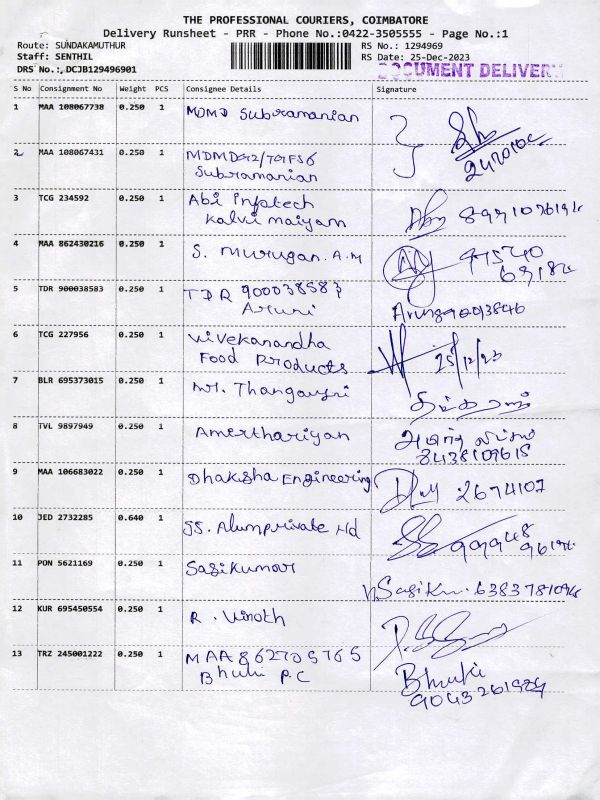 THE PROFESSIONAL COURIERS, COIMBATORE
Delivery Runsheet - PRR - Phone No.:0422-3505555 - Page No.:1
Route: SUNDAKAMUTHUR RS No.: 1294969
Staff: SENTHIL RS Date: 25-Dec-2023
DRS No.: DCJB129496901 DOCUMENT DELIVERY
S No Consignment No Weight PCS Consignee Details Signature
1 MAA 108067738 0.250 1 MDMD Subramanian
2 MAA 108067431 0.250 1
Subramanian
3 TCG 234592 0.250 1 Abi Infotech
Kalvi maiyam
4 MAA 862430216 0.250 1 S. Murugan. A.M
5 TDR 900038583 0.250 1 TDR 900038583
6 TCG 227956 0.250 1 Vivekanandha
Food Products 25/12/23
7 BLR 695373015 0.250 1
8 TVL 9897949 0.250 1 Amerthariyan
8438109615
9 MAA 106683022 0.250 1 Dhaksha Engineering 2674107
10 JED 2732285 0.640 1
11 PON 5621169 0.250 1 Sasikumar
12 KUR 695450554 0.250 1 R. Vinoth
13 TRZ 245001222 0.250 1 MAA 862705765
P.C